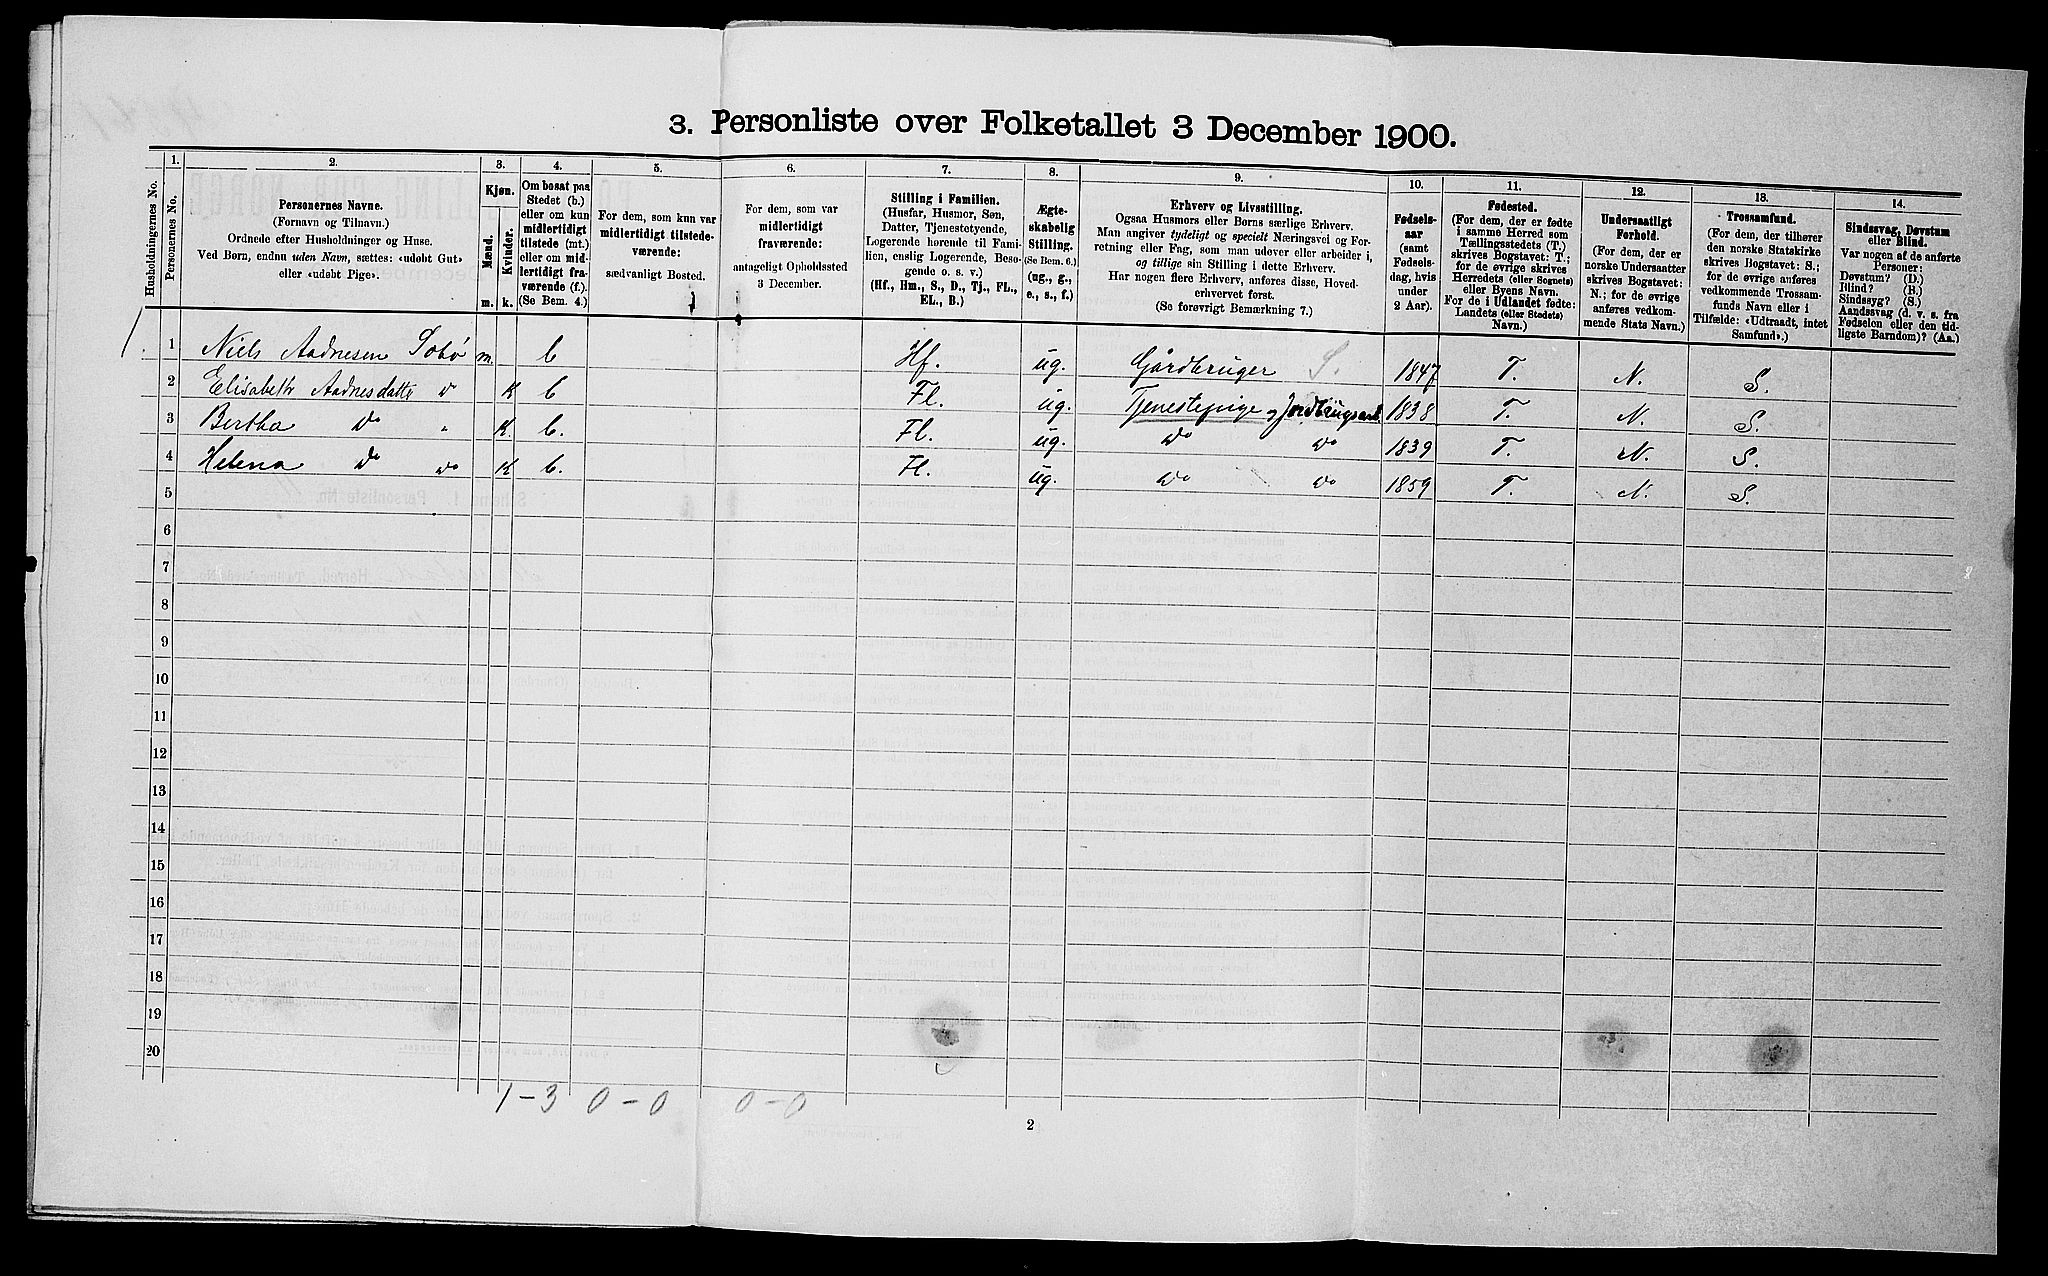 3. Personliste over Folketallet 3 December 1900.
Husholdningernes No.
1. Personernes No.
2.
Personernes Navne.
(Fornavn og Tilnavn.)
Ordnede efter Husholdninger og Huse.
Ved Børn, endnu uden Navn, sættes: «udøbt Gut»
eller «udøbt Pige».
3.
Kjøn.
Mænd. Kvinder.
m. k.
4.
Om bosat paa
Stedet (b.)
eller om kun
midlertidigt
tilstede (mt.)
eller om mid-
lertidigt fra-
værende (f.).
(Se Bem. 4.)
5.
For dem, som kun var
midlertidigt tilstede-
værende:
sædvanligt Bosted.
6.
For dem, som var
midlertidigt
fraværende:
antageligt Opholdssted
3 December.
7.
Stilling i Familien.
(Husfar, Husmor, Søn,
Datter, Tjenestetyende,
Logerende hørende til Fami-
lien, enslig Logerende, Besø-
gende o. s. v.)
(Hf., Hm., S., D., Tj., FL.,
EL., B.)
8.
Ægte-
skabelig
Stilling.
(Se Bem. 6.)
(ug., g.,
e., s., f.)
9.
Erhverv og Livsstilling.
Ogsaa Husmors eller Børns særlige Erhverv.
Man angiver tydeligt og specielt Næringsvei og For-
retning eller Fag, som man udøver eller arbeider i,
og tillige sin Stilling i dette Erhverv.
Har nogen flere Erhverv, anføres disse, Hoved-
erhvervet først.
(Se forøvrigt Bemærkning 7.)
10.
Fødsels-
aar
(samt
Fødsels-
dag, hvis
under
2 Aar).
11.
Fødested.
(For dem, der er fødte
i samme Herred som
Tællingsstedets (T.)
skrives Bogstavet: T.;
for de øvrige skrives
Herredets (eller Sognets)
eller Byens Navn.
For de i Udlandet fødte:
Landets (eller Stedets)
Navn.)
12.
Undersaatligt
Forhold.
(For dem, der er
norske Undersaatter
skrives Bogstavet:
N.; for de øvrige
anføres vedkom-
mende Stats Navn.)
13.
Trossamfund.
(For dem, der tilhører
den norske Statskirke
skrives Bogstavet: S.;
for de øvrige anføres
vedkommende Trossam-
funds Navn eller i
Tilfælde: «Udtraadt, intet
Samfund».)
14.
Sindssvag, Døvstum
eller Blind.
Var nogen af de anførte
Personer:
Døvstum? (D.)
Blind? (B.)
Sindssyg? (S.)
Aandssvag (d. v. s. fra
Fødselen eller den tid-
ligste Barndom)? (Aa.)
1. 1 Niels Aadnesen Sobø m. b Hf. ug. Gårdbruger S. 1847 T. N. S.
2 Elisabeth Aadnesdatter do K b Fl. ug. Tjenestepige og Jordbrugsarb 1838 T. N. S.
3 Bertha do " K. b. Fl. ug. do do 1839 T. N. S.
4 Helena do do K b. Fl. ug. do do 1859 T. N. S.
5
6
7
8
9
10
11
12
13
14
15
16
17
18
19
20
1 - 3 0 - 0 0 - 0
2